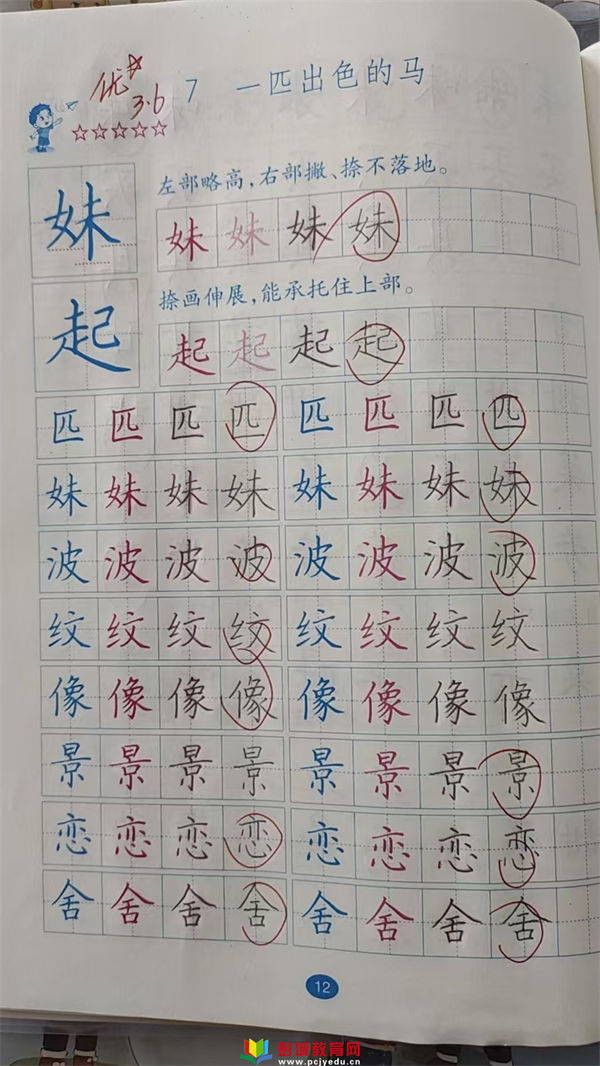 优
3.6
7 一匹出色的马
☆☆☆☆☆
妹
左部略高，右部撇、捺不落地。
妹 妹 妹 妹
起
捺画伸展，能承托住上部。
起 起 起 起
匹 匹 匹 匹 匹 匹 匹 匹
妹 妹 妹 妹 妹 妹 妹 妹
波 波 波 波 波 波 波 波
纹 纹 纹 纹 纹 纹 纹 纹
像 像 像 像 像 像 像 像
景 景 景 景 景 景 景 景
恋 恋 恋 恋 恋 恋 恋 恋
舍 舍 舍 舍 舍 舍 舍 舍
12
教育网
www.pcjyedu.cn